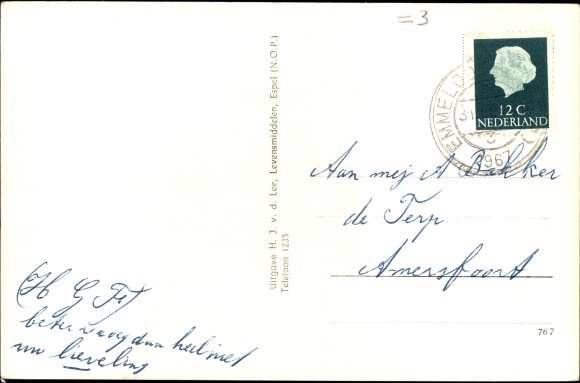 =3
12 C
NEDERLAND
EMMELO
31
1967
Uitgave H. J. v. d. Lee, Levensmiddelen, Espel (N.O.P.)
Telefoon 1233
Aan mej A Bakker
de Terp
Amersfoort
(H G F)
beter vroeg dan heel niet
uw lieveling
762